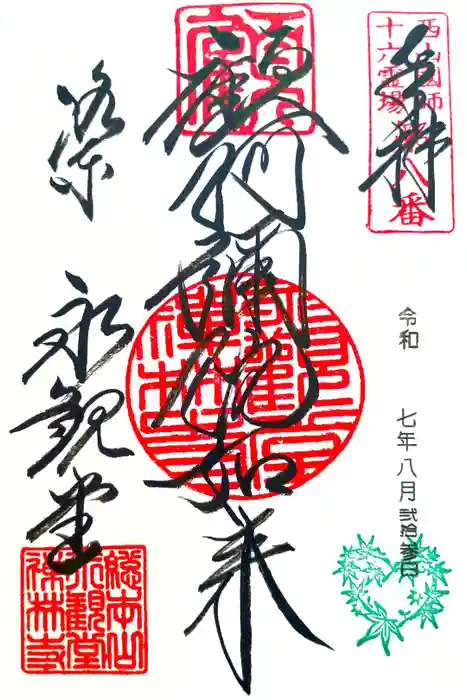 奉拝
西山国師
十六霊場第八番
令和 七年八月弐拾参日
顧阿弥陀如来
洛東
永観堂
総本山
永観堂
禅林寺